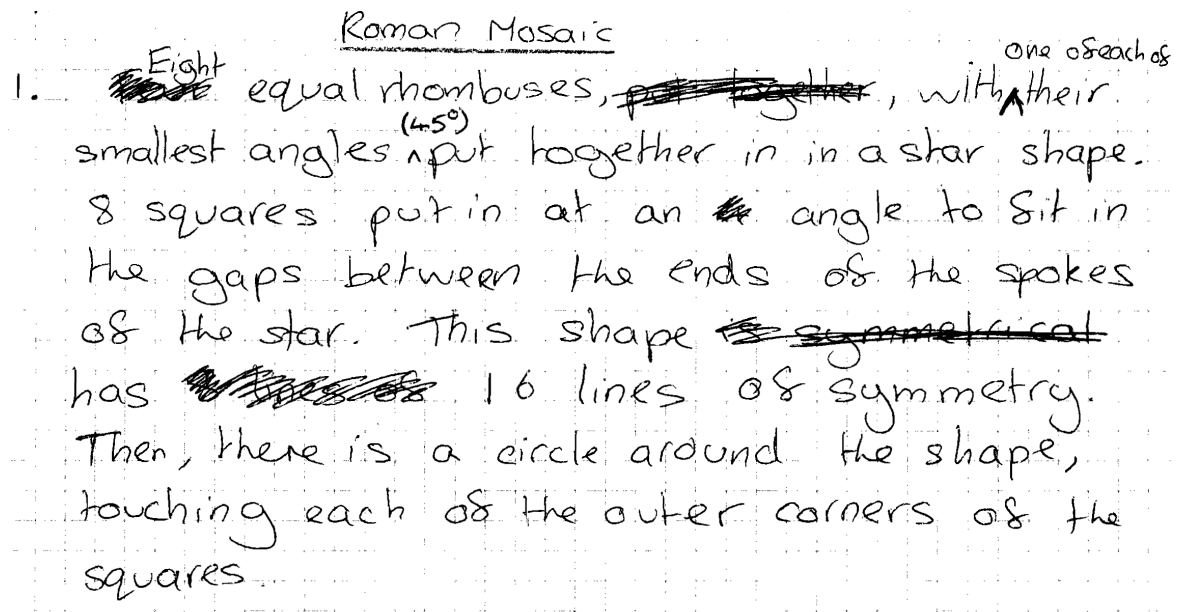 Roman Mosaic
one of each of
1. Eight equal rhombuses, put together, with ^ their
(45°)
smallest angles ^ put together in in a star shape.
8 squares put in at an angle to fit in
the gaps between the ends of the spokes
of the star. This shape is symmetrical
has 16 lines of symmetry.
Then, there is a circle around the shape,
touching each of the outer corners of the
squares.